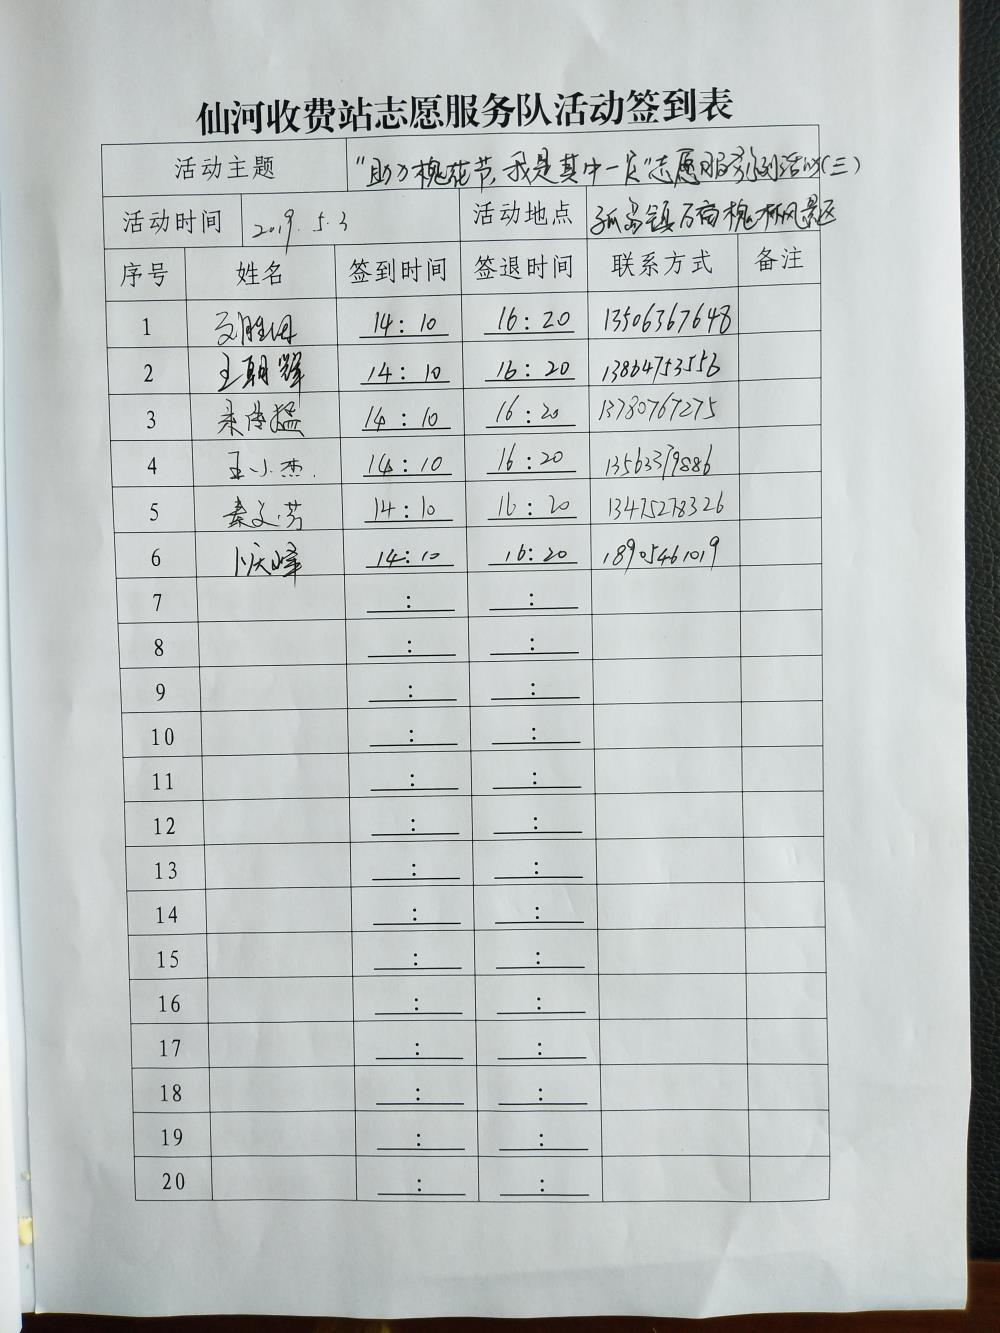 仙河收费站志愿服务队活动签到表
活动主题 "助力槐花节,我是其中一员"志愿服务系列活动(三)
活动时间 2019.5.3 活动地点 孤岛镇万亩槐林风景区
序号 姓名 签到时间 签退时间 联系方式 备注
1 14:10 16:20 13506367648
2 王朝辉 14:10 16:20 13864753556
3 14:10 16:20 13780767275
4 王小杰. 14:10 16:20 13563379886
5 秦文芳 14:10 16:20 13475278326
6 14:10 16:20 18905461019
7 : :
8 : :
9 : :
10 : :
11 : :
12 : :
13 : :
14 : :
15 : :
16 : :
17 : :
18 : :
19 : :
20 : :